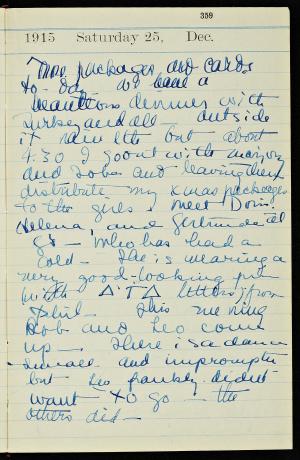 359
1915 Saturday 25, Dec.
More packages and cards
to-day - we have a
beauteous dinner with
turkey and all - outside
it rains ltte but about
4:30 I go out with marjory
and Bob and leaving them
distribute my Xmas packages
to the girls - meet Doris,
Helena, and Gertrude at
G's - who has had a
cold - She is wearing a
very good-looking pin
(with Δ T Δ letters) from
Phil - This evening
Bob and Leo come
up - There is a dance
small and impromptu
but Leo frankly didn't
want to go - the
others did -